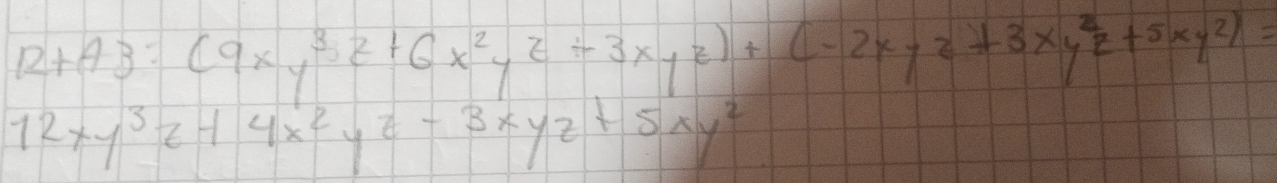 R+AB= (9xy³z+6x²yz-3xyz)+(-2xyz+3xy²z+5xy²)=
12xy³z+4x²yz-3xyz+5xy²